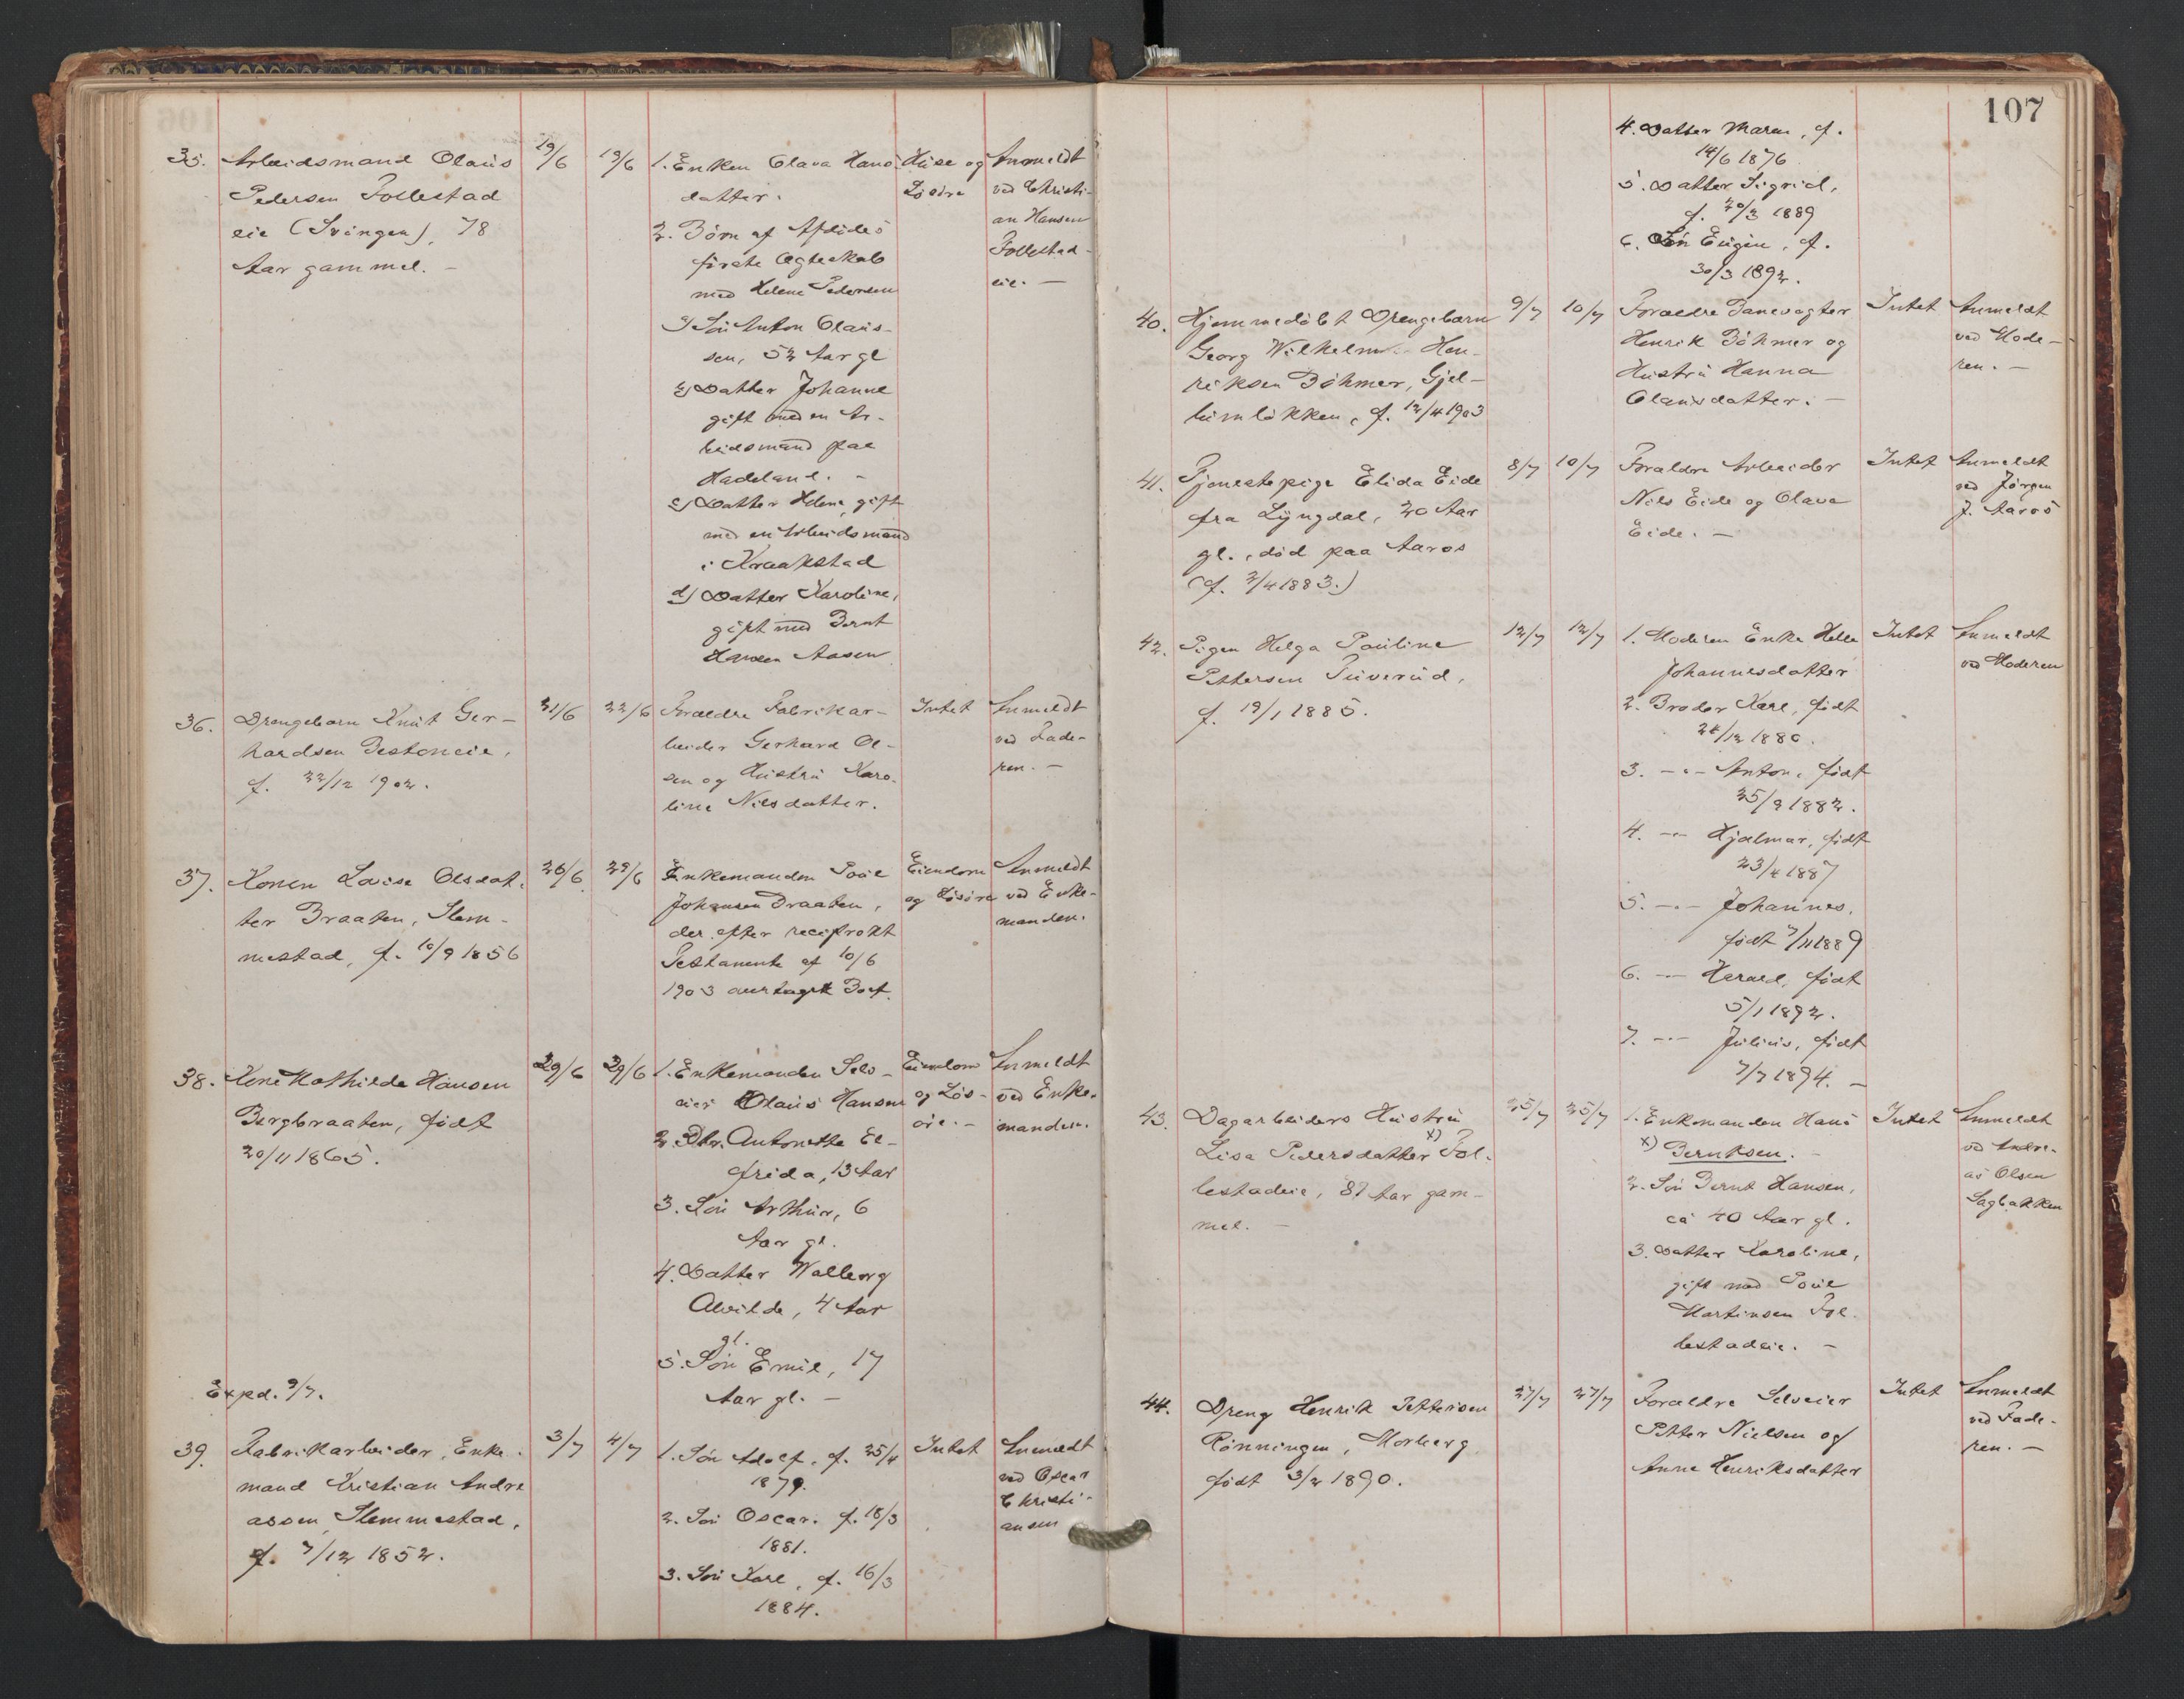 35.
Arbeidsmand Olaus
Pedersen Follestad
eie (Svingen), 78
Aar gammel. –
19/6
19/6
1. Enken Olava Hans-
datter.
2. Börn af Afdödes
förste Ægteskab
med Helene Pedersen
a) Sön Anton Olaus-
sen, 52 Aar gl
b) Datter Johanne
gift med en Ar-
beidsmand paa
Hadeland. –
c) Datter Helene, gift
med en Arbeidsmand
i Kraakstad
d) Datter Karoline,
gift med Bernt
Hansen Aasen
Huse og
Lösöre
Anmeldt
ved Christi-
an Hansen
Follestad-
eie. –
36.
Drengebarn Knut Ger-
hardsen Bestoneie,
f. 22/12 1902.
21/6
22/6
Forældre Fabrikar-
beider Gerhard Ol-
sen og Hustru Karo-
line Nilsdatter.
Intet
Anmeldt
ved Fade-
ren. –
37.
Konen Lovise Olsdat-
ter Braaten, Slem-
mestad, f. 10/9 1856
26/6
29/6
Enkemanden Poul
Johansen Braaten,
der efter reciprokt
Testamente af 10/6
1903 overtager Boet.
Eiendom
og Lösöre
Anmeldt
ved Enke-
manden.
38.
Kone Mathilde Hansen
Bergbraaten, födt
20/11 1865.
29/6
29/6
1. Enkemanden Selv-
eier Olaus Hansen
2. Dtr. Antonette El-
frida, 13 Aar
3. Sön Arthur, 6
Aar gl.
4. Datter Walborg
Alvilde, 4 Aar
gl.
5. Sön Emil, 17
Aar gl. –
Eiendom
og Lös-
öre. –
Anmeldt
ved Enke-
manden.
Expd. 9/7.
39.
Fabrikarbeider, Enke-
mand Kristian Andre
assen Slemmestad,
f. 7/12 1852.
3/7
4/7
1. Sön Adolf, f. 25/4
1879.
2. Sön Oscar. f. 18/3
1881.
3. Sön Karl, f. 16/3
1884.
Intet
Anmeldt
ved Oscar
Christi-
ansen
107
4. Datter Maren, f.
14/6 1876
5. Datter Sigrid,
f. 20/3 1889
6. Sön Eugen, f.
30/3 1892.
40.
Hjemmedöbt Drengebarn
Georg Wilhelm Hen-
riksen Böhmer, Gjel-
lumlökken, f. 12/4 1903
9/7
10/7
Forældre Banevogter
Henrik Böhmer og
Hustru Hanna
Olausdatter. –
Intet
Anmeldt
ved Mode-
ren. –
41.
Tjenestepige Elida Eide
fra Lyngdal, 20 Aar
gl., död paa Aaros
(f. 2/4 1883.)
8/7
10/7
Forældre Arbeider
Nils Eide og Olava
Eide. –
Intet
Anmeldt
ved Jörgen
J. Aaros
42.
Pigen Helga Pauline
Pettersen Tuverud,
f. 19/1 1885.
12/7
12/7
1. Moderen Enke Helle
Johannesdatter
2. Broder Karl, födt
24/12 1880.
3. –"– Anton, födt
25/9 1882.
4. –"– Hjalmar, födt
23/4 1887
5. –"– Johannes,
födt 7/11 1889
6. –"– Harald, födt
5/1 1892.
7. –"– Julius, födt
7/7 1894. –
Intet
Anmeldt
ved Moderen
43.
Dagarbeiders Hustru
Lisa Pedersdatter x) Fol-
lestadeie, 81 Aar gam-
mel. –
25/7
25/7
1. Enkemanden Hans
x) Berntsen. –
2. Sön Bernt Hansen,
ca 40 Aar gl.
3. Datter Karoline,
gift med Poul
Martinsen Fol-
lestadeie. –
Intet
Anmeldt
ved Andre-
as Olsen
Sagbakken
44.
Dreng Henrik Pettersen
Rönningen, Morberg
födt 3/2 1890.
27/7
27/7
Forældre Selveier
Petter Nielsen og
Anne Henriksdatter
Intet
Anmeldt
ved Fade-
ren. –